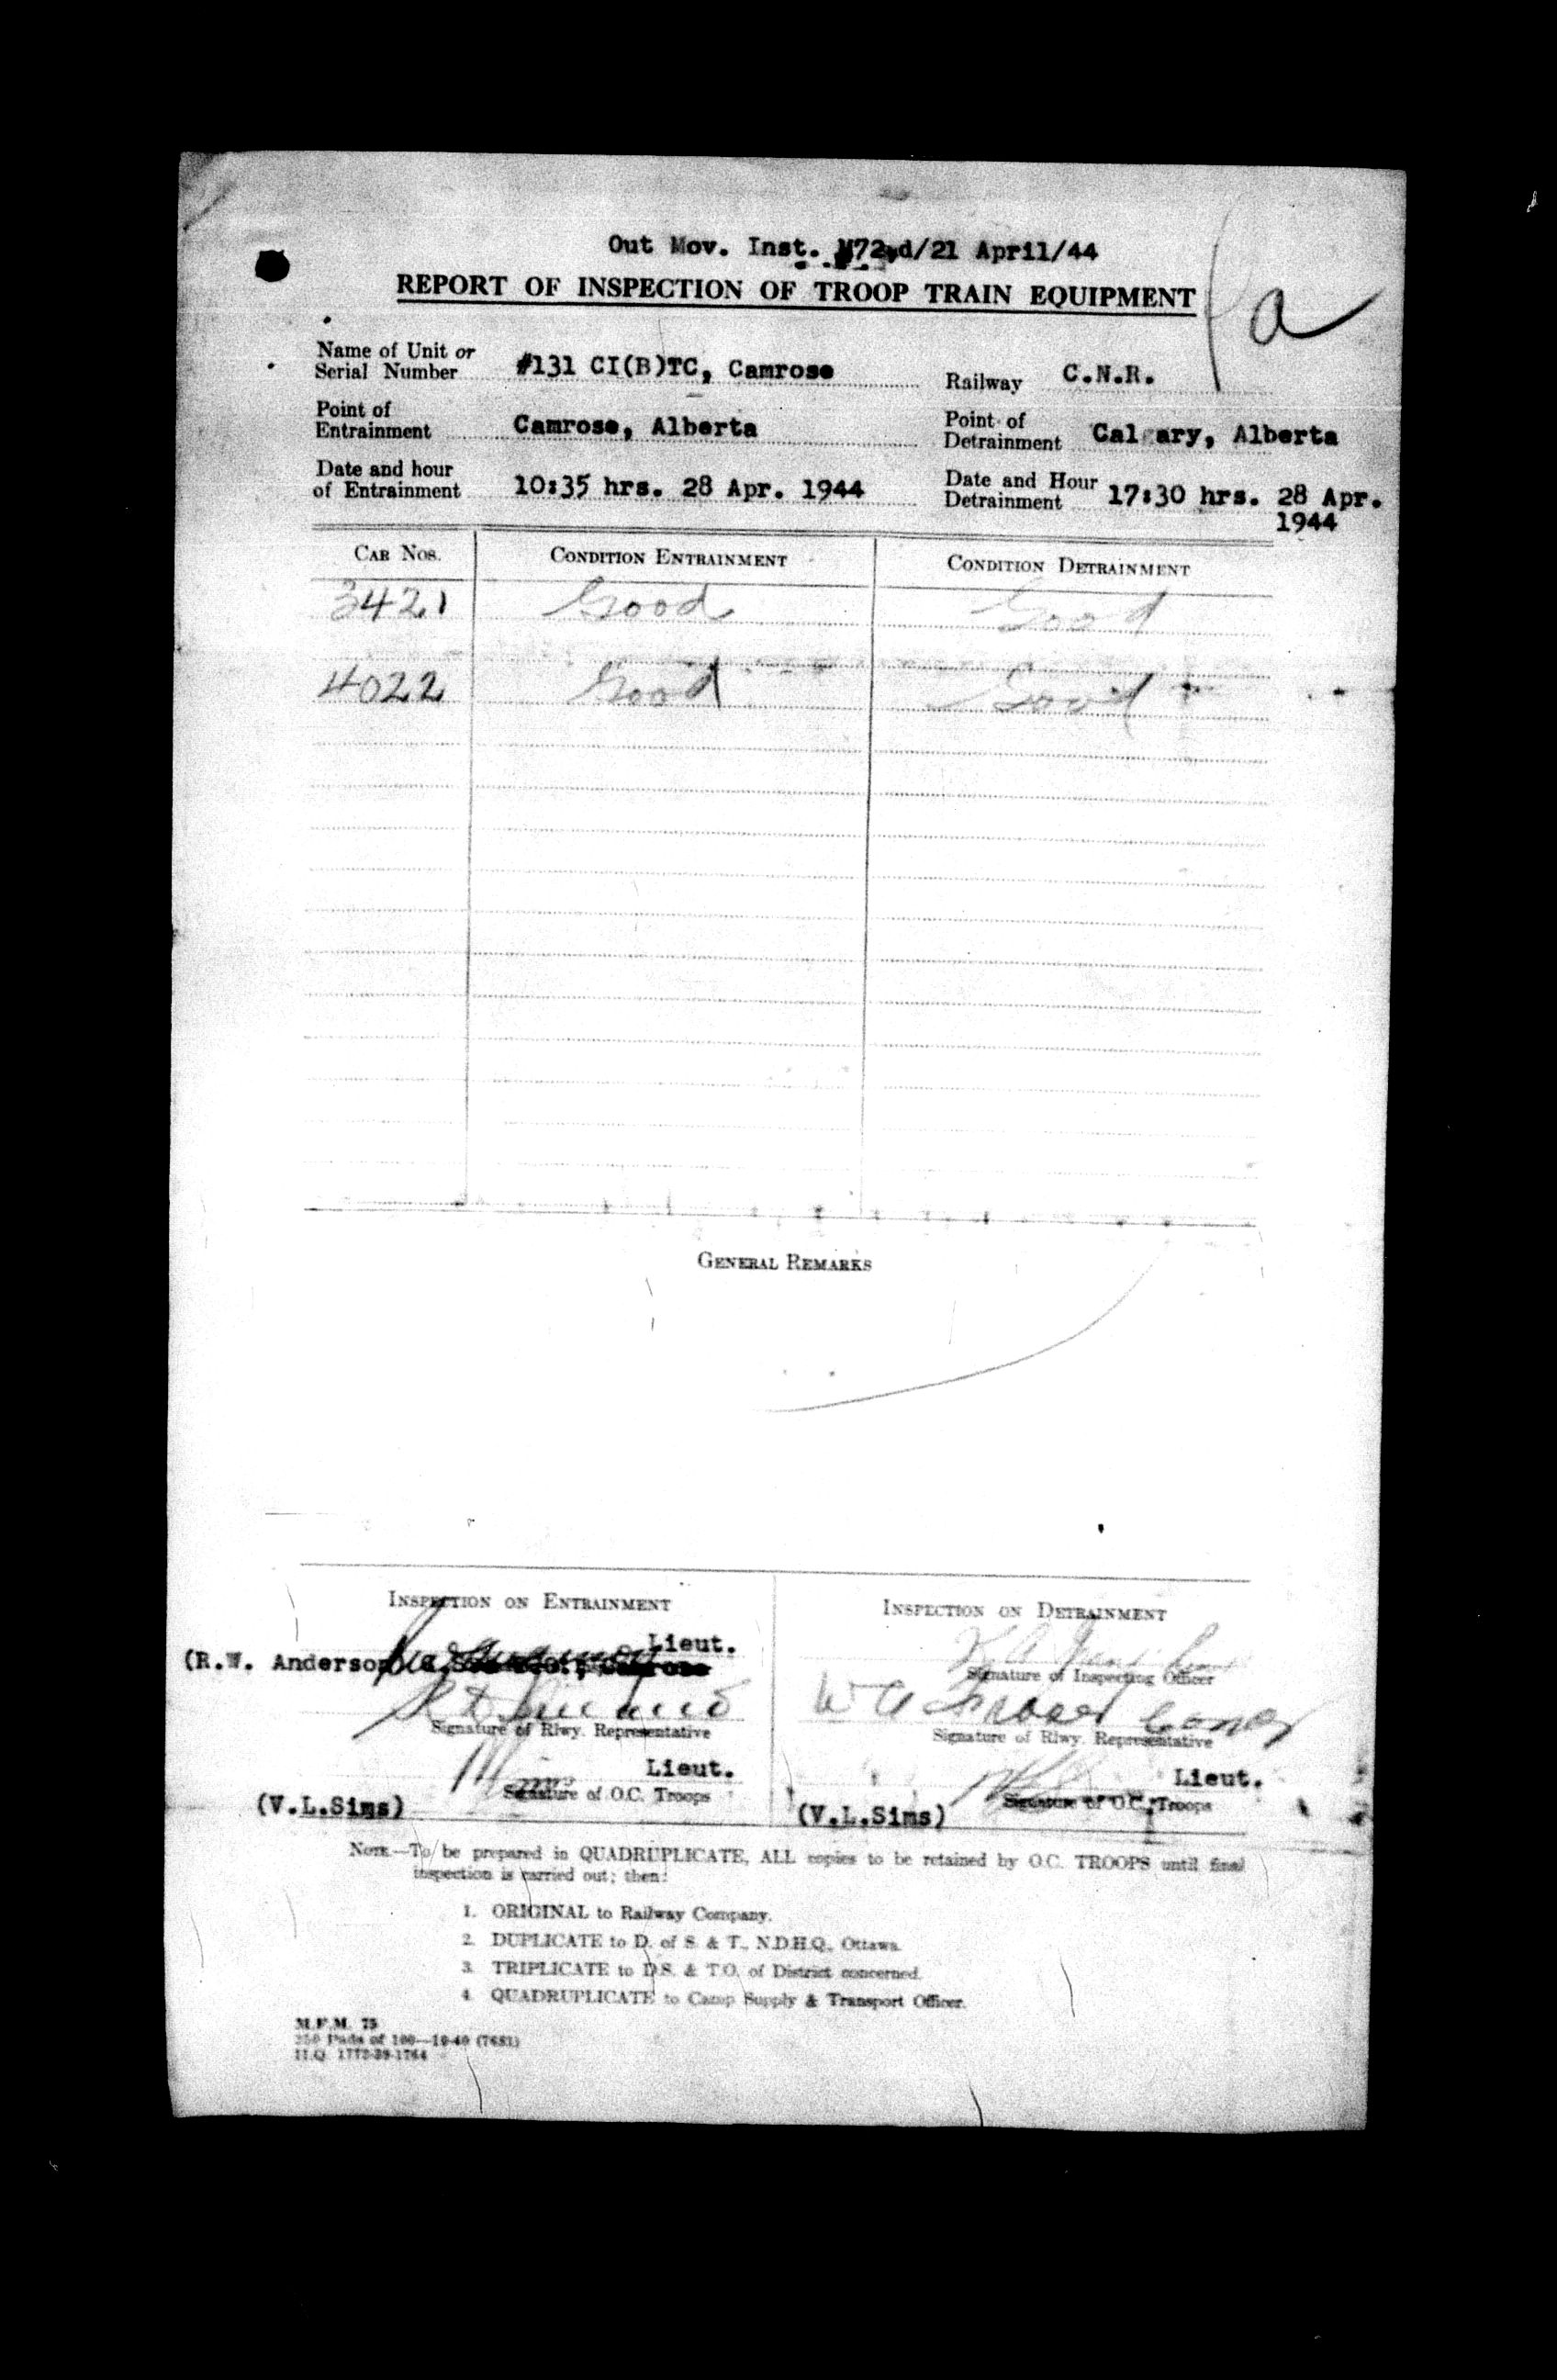 Out Mov. Inst. d/21 April/44
REPORT OF INSPECTION OF TROOP TRAIN EQUIPMENT
a
Name of Unit or Serial Number #131 CI(B)TC, Camrose Railway C.N.R.
Point of Entrainment Camrose, Alberta Point of Detrainment Cal ary, Alberta
Date and hour of Entrainment 10:35 hrs. 28 Apr. 1944 Date and Hour Detrainment 17:30 hrs. 28 Apr.
1944
CAR NOS. CONDITION ENTRAINMENT CONDITION DETRAINMENT
3421 Good Good
4022 Good Good
GENERAL REMARKS
INSPECTION ON ENTRAINMENT INSPECTION ON DETRAINMENT
Lieut.
(R.W. Anderson) Camrose Signature of Inspecting Officer
Signature of Rlwy. Representative Signature of Rlwy. Representative
Lieut. Lieut.
Signature of O.C. Troops Signature of O.C. Troops
(V.L.Sims) (V.L.Sims)
NOTE.—To be prepared in QUADRUPLICATE, ALL copies to be retained by O.C. TROOPS until final
inspection is carried out; then:
1. ORIGINAL to Railway Company.
2. DUPLICATE to D. of S. & T., N.D.H.Q., Ottawa.
3. TRIPLICATE to D.S. & T.O. of District concerned.
4. QUADRUPLICATE to Camp Supply & Transport Officer.
M.F.M. 75
250 Pads of 100—10-40 (7681)
H.Q. 1772-39-1764